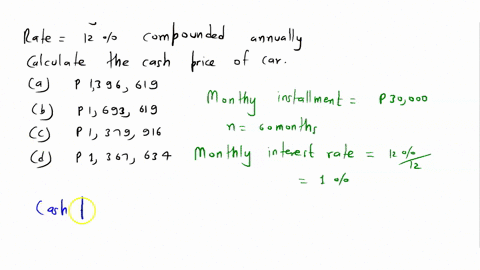 Rate = 12 % compounded annually
Calculate the cash price of car.
(a) P 1,396, 619
(b) P 1, 693, 619
(c) P 1, 379, 916
(d) P 1, 367, 634
Monthy installment = P30,000
n = 60 months
Monthly interest rate = 12 % / 12
= 1 %
Cash